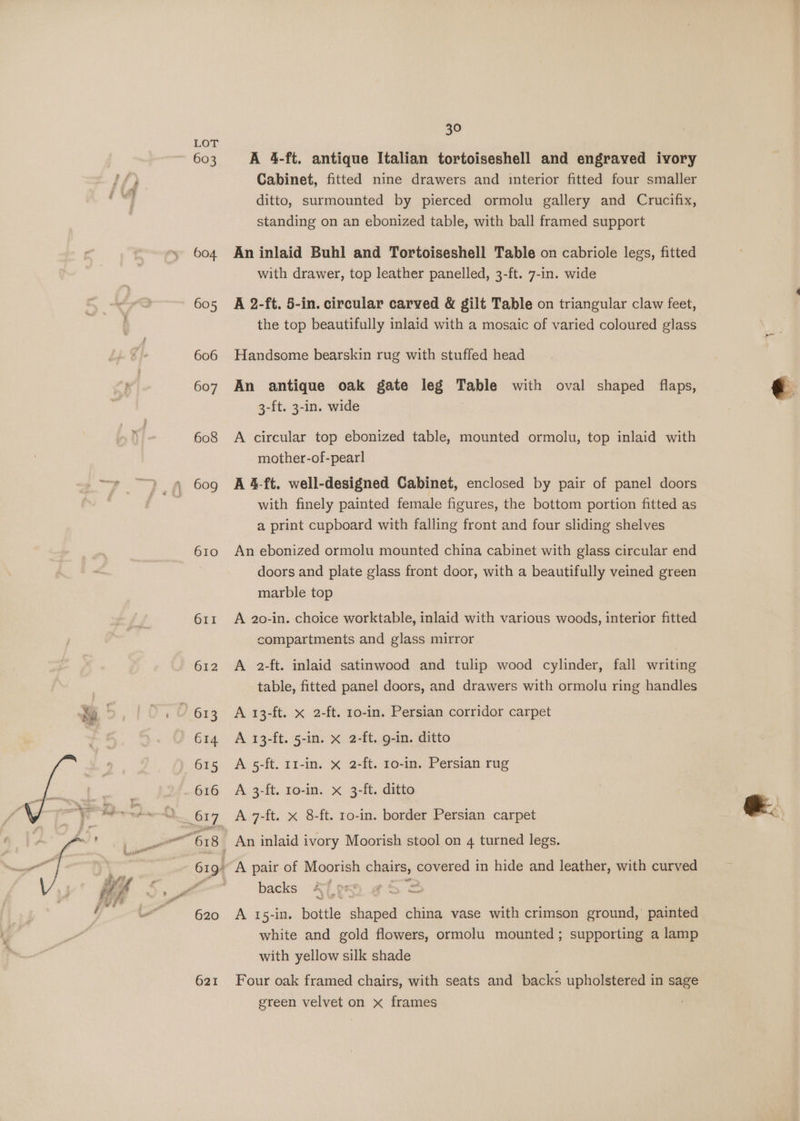 30
LOT
603 A 4-ft. antique Italian tortoiseshell and engraved ivory
Cabinet, fitted nine drawers and interior fitted four smaller
ditto, surmounted by pierced ormolu gallery and Crucifix,
standing on an ebonized table, with ball framed support
604 An inlaid Buhl and Tortoiseshell Table on cabriole legs, fitted
with drawer, top leather panelled, 3-ft. 7-in. wide
605 A 2-ft. 5-in. circular carved & gilt Table on triangular claw feet,
the top beautifully inlaid with a mosaic of varied coloured glass
606 Handsome bearskin rug with stuffed head
607 An antique oak gate leg Table with oval shaped flaps,
3-ft. 3-in. wide
608 A circular top ebonized table, mounted ormolu, top inlaid with
mother-of-pearl
609 A 4-ft. well-designed Cabinet, enclosed by pair of panel doors
with finely painted female figures, the bottom portion fitted as
a print cupboard with falling front and four sliding shelves
610 An ebonized ormolu mounted china cabinet with glass circular end
doors and plate glass front door, with a beautifully veined green
marble top
611 A 20-in. choice worktable, inlaid with various woods, interior fitted
compartments and glass mirror
612 A 2-ft. inlaid satinwood and tulip wood cylinder, fall writing
table, fitted panel doors, and drawers with ormolu ring handles
613 A 13-ft. × 2-ft. 10-in. Persian corridor carpet
614 A 13-ft. 5-in. × 2-ft. 9-in. ditto
615 A 5-ft. 11-in. × 2-ft. 10-in. Persian rug
616 A 3-ft. 10-in. × 3-ft. ditto
617 A 7-ft. × 8-ft. 10-in. border Persian carpet
618 An inlaid ivory Moorish stool on 4 turned legs.
619 A pair of Moorish chairs, covered in hide and leather, with curved
backs
620 A 15-in. bottle shaped china vase with crimson ground, painted
white and gold flowers, ormolu mounted; supporting a lamp
with yellow silk shade
621 Four oak framed chairs, with seats and backs upholstered in sage
green velvet on × frames